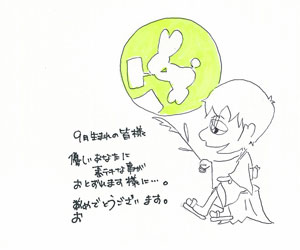 9月生まれの皆様
優しいあなたに
素テキな事が
おとずれます様に…。
おめでとうございます。
お